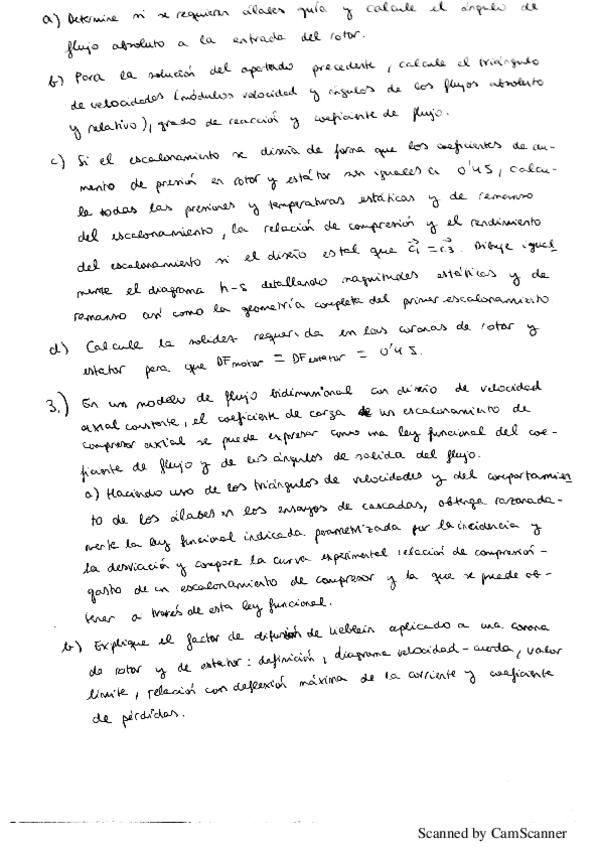 a) Determine si se requieren álabes guía y calcule el ángulo de
flujo absoluto a la entrada del rotor.
b) Para la solución del apartado precedente, calcule el triángulo
de velocidades (módulos velocidad y ángulos de los flujos absoluto
y relativo), grado de reacción y coeficiente de flujo.
c) Si el escalonamiento se diseña de forma que los coeficientes de au-
mento de presión en rotor y estátor son iguales a 0'45, calcu-
le todas las presiones y temperaturas estáticas y de remanso
del escalonamiento, la relación de compresión y el rendimiento
del escalonamiento si el diseño es tal que c⃗1 = c⃗3. Dibuje igual
mente el diagrama h-s detallando magnitudes estáticas y de
remanso así como la geometría completa del primer escalonamiento
d) Calcule la solidez requerida en las coronas de rotor y
estator para que DF = DF estator = 0'45.
3.) En un modelo de flujo bidimensional con diseño de velocidad
axial constante, el coeficiente de carga de un escalonamiento de
compresor axial se puede expresar como una ley funcional del coe-
ficiente de flujo y de los ángulos de salida del flujo.
a) Haciendo uso de los triángulos de velocidades y del comportamien
to de los álabes en los ensayos de cascadas, obtenga razonada-
mente la ley funcional indicada parametrizada por la incidencia y
la desviación y compare la curva experimental relación de compresión-
gasto de un escalonamiento de compresor y la que se puede ob-
tener a través de esta ley funcional.
b) Explique el factor de difusión de Lieblein aplicado a una corona
de rotor y de estator: definición, diagrama velocidad-cuerda, valor
límite, relación con deflexión máxima de la corriente y coeficiente
de pérdidas.
Scanned by CamScanner